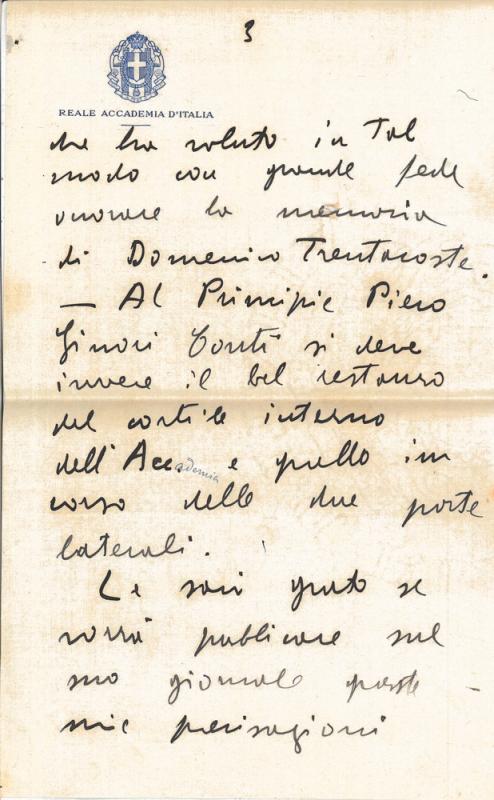 3
REALE ACCADEMIA D'ITALIA
che ha voluto in tal
modo con grande fede
onorare la memoria
di Domenico Trentacoste.
— Al Principe Piero
Ginori Conti si deve
invece il bel restauro
del cortile interno
dell'Accademia e quello in
corso delle due porte
laterali.
Le sarò grato se
vorrà publicare sul
suo giornale queste
mie